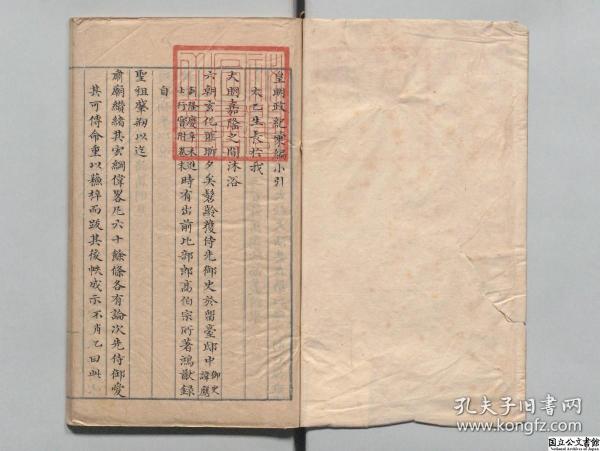 皇明政紀彙編小引
太乙生長於我
大明嘉隆之間沐浴
六朝玄化匪朝夕矣髫齡獲侍先御史於留臺邸中御史諱應
時有出前比部郎高伯宗所著鴻猷錄
自
聖祖肇刱以迄
肅廟纘緒其宏綱偉畧凡六十餘條各有論次先侍御愛
其可傳命重以蘇梓而跋其後帙成示不肖乙曰此
孔夫子旧书网
www.kongfz.com
国立公文書館
National Archives of Japan